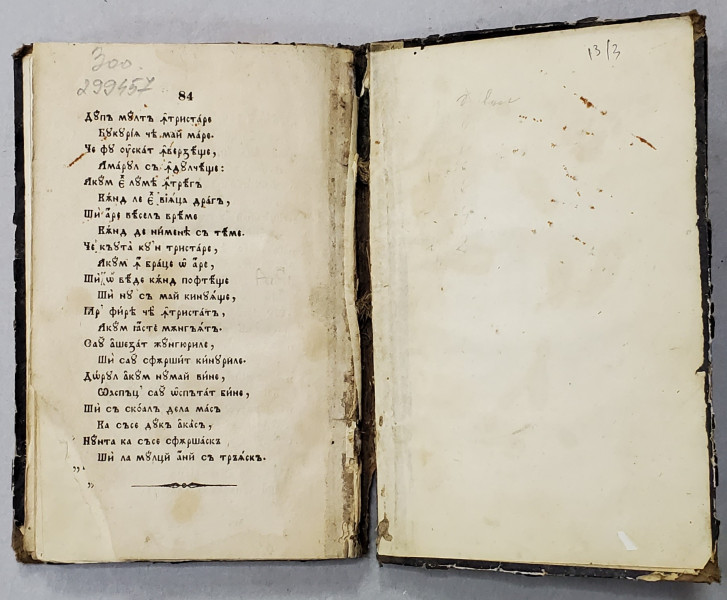 Зоо.
299457
84
Дꙋпъ мꙋлтъ ꙟ҆триста́ре
Бꙋкꙋрі́ѧ чѣ май ма́ре.
Че фꙋ ꙋ҆скат ꙟ҆верзѣ́ще,
Амарꙋл съ ꙟ҆дꙋлчѣ́ще:
Акꙋм є҆̀ лꙋмѣ̀ ꙟ҆трѣ́гъ
Кѫнд ле є҆̀ віѧ́ца драгъ,
Шѝ а҆́ре ве́сел врѣ́ме
Кѫнд де ни́менѣ съ тѣ́ме.
Че къꙋта̀ кꙋ҆н триста́ре,
Акꙋм ꙟ҆ бра́це ѡ҆ а҆́ре,
Шѝ ѡ҆ ве́де кѫнд пофтѣ́ще
Шѝ нꙋ съ май кинꙋѧ́ще,
Ꙗр фи́рѣ чѣ ꙟ҆триста́тъ,
Акꙋм ꙗ҆́сте мѫнгъѧ́тъ.
Саꙋ а҆шеза́т жꙋнгюриле,
Шѝ саꙋ сфѫрши́т ки́нꙋриле.
Дѡ́рꙋл а҆кꙋм нꙋмай ви́не,
Ѡ҆аспъц саꙋ ѡ҆спъта́т би́не,
Шѝ съ ско́алъ дела ма́съ
Ка съсе дꙋкъ а҆ка́съ,
Нꙋ́нта ка съсе сфѫрша́скъ
Шѝ ла мꙋлцй а҆́нй съ тръѧ́скъ.
13/3